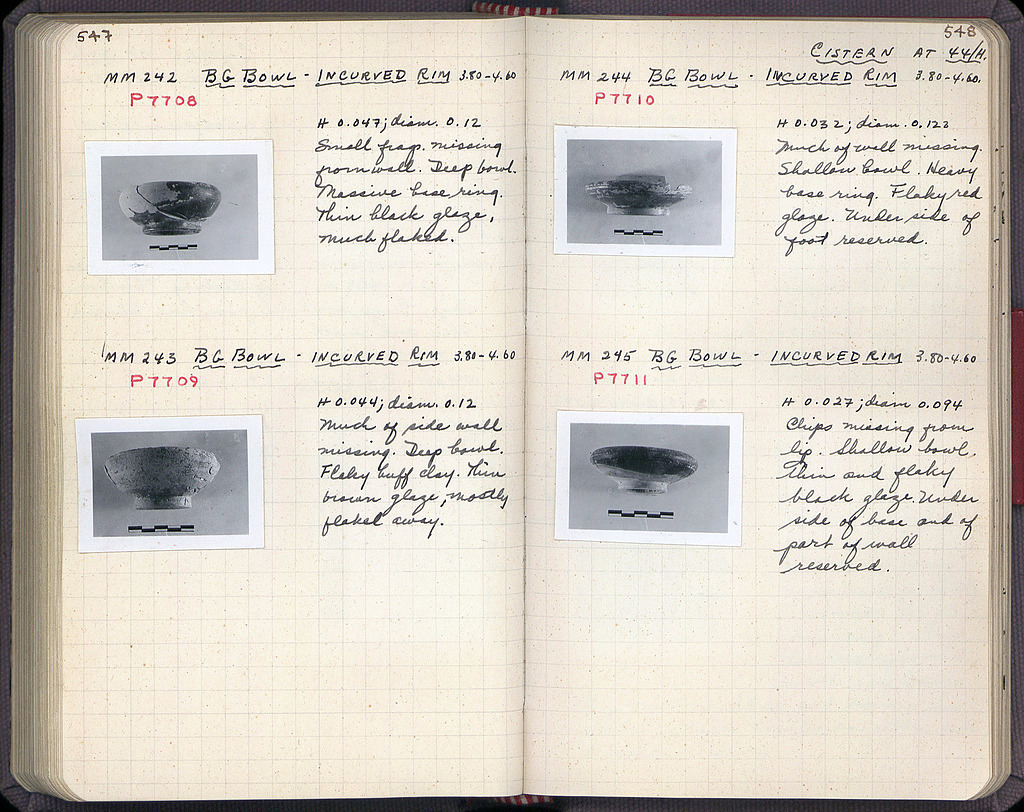 547
MM 242 BG BOWL - INCURVED RIM 3.80-4.60
P7708
H 0.047; diam. 0.12
Small frag. missing
from wall. Deep bowl.
Massive base ring.
Thin black glaze,
much flaked.
MM 243 BG BOWL - INCURVED RIM 3.80-4.60
P7709
H 0.044; diam. 0.12
Much of side wall
missing. Deep bowl.
Flaky buff clay. Thin
brown glaze, mostly
flaked away.
548
CISTERN AT 44/H.
MM 244 BG BOWL - INCURVED RIM 3.80-4.60.
P7710
H 0.032; diam. 0.122
Much of wall missing.
Shallow bowl. Heavy
base ring. Flaky red
glaze. Under side of
foot reserved.
MM 245 BG BOWL - INCURVED RIM 3.80-4.60
P7711
H 0.027; diam 0.094
Chips missing from
lip. Shallow bowl.
Thin and flaky
black glaze. Under
side of base and of
part of wall
reserved.